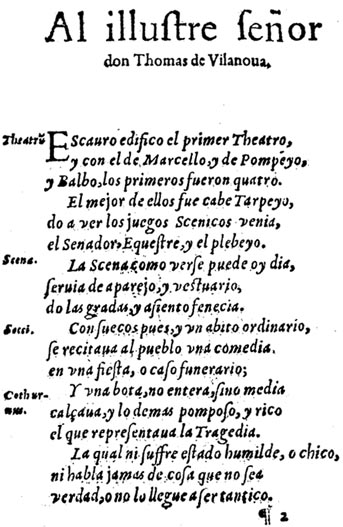 Al illuſtre ſeñor
don Thomas de Vilanoua.
Theatrũ
EScauro edifico el primer Theatro,
y con el de Marcello, y de Pompeyo,
y Balbo, los primeros fueron quatro.
El mejor de ellos fue cabe Tarpeyo,
do a ver los juegos Scenicos venia,
el Senador, Equeſtre, y el plebeyo.
Scena.
La Scena como verſe puede oy dia,
ſeruia de aparejo, y veſtuario,
do las gradas, y aſiento fenecia.
Socci.
Con ſuecos pues, y vn abito ordinario,
ſe recitaua al pueblo vna comedia.
en vna fieſta, o caſo funerario;
Cothur-
nus.
Y vna bota, no entera, ſino media
calçaua, y lo demas pompoſo, y rico
el que repreſentaua la Tragedia.
La qual ni ſuffre eſtado humilde, o chico,
ni habla jamas de coſa que no ſea
verdad, o no lo llegue a ſer tantico.
¶ 2